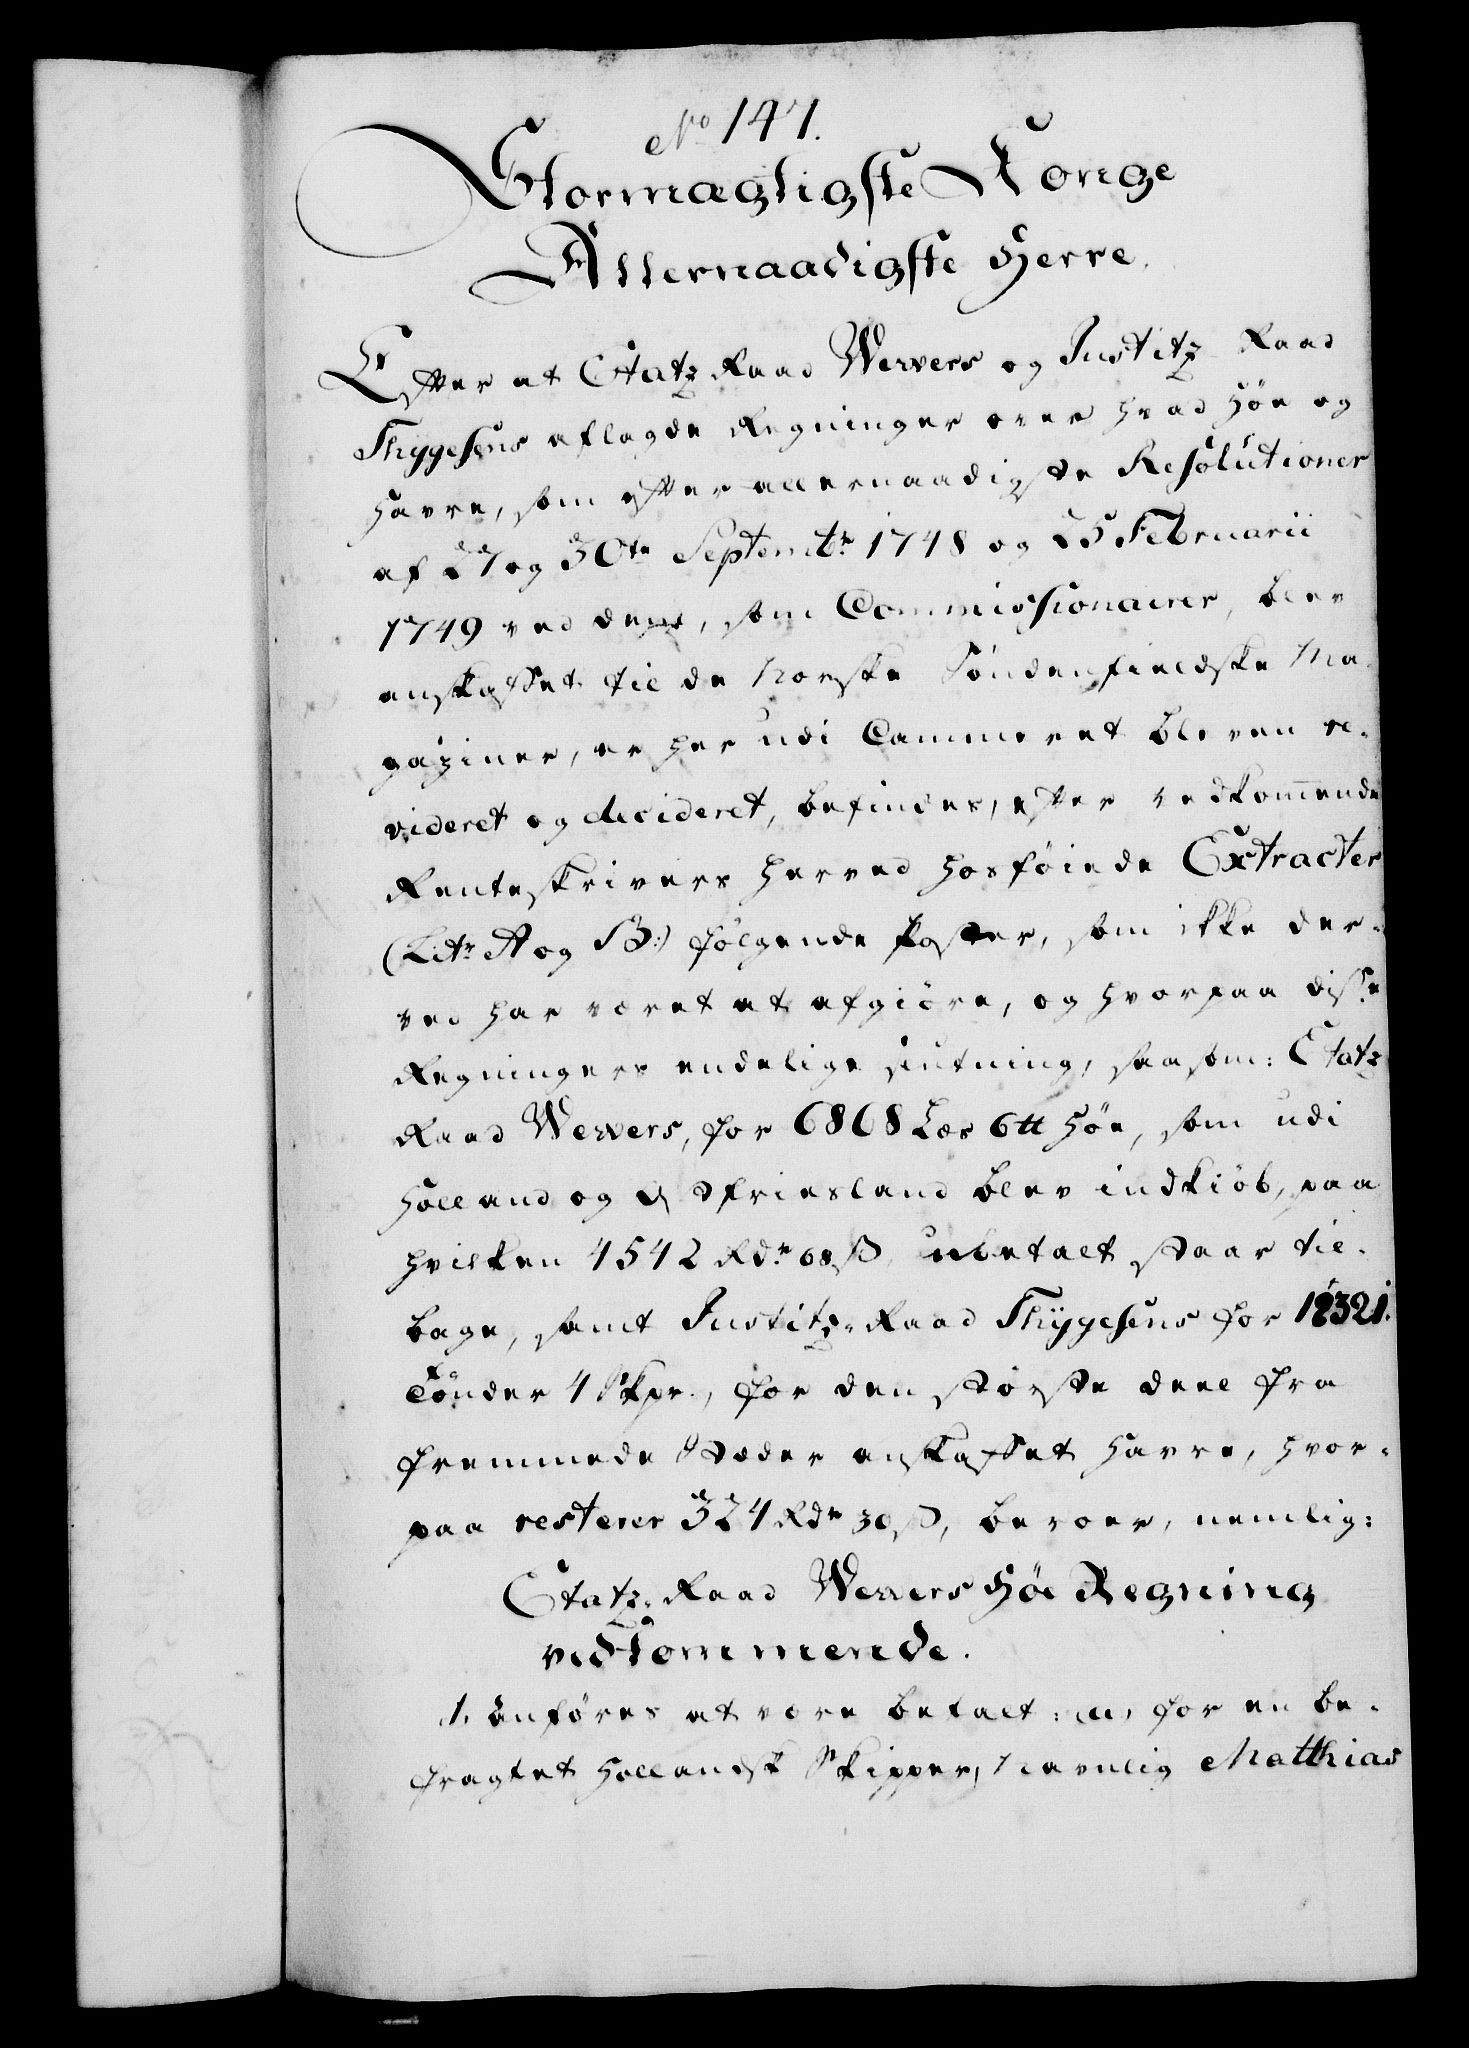 No 147.
Stormægtigste Konge
Allernaadigste Herre.
Efter at Etatz Raad Wewers og Justitz Raad
Thygesens aflagde Regninger over hvad Höe og
Havre, som efter allernaadigste Resolutioner
af 27 og 30te Septembr 1748 og 25 Februarii
1749 ved dem, som Commissionairer, blev
anskaffet til de Norske Söndenfieldske Ma-
gaziner, er her udi Cammeret bleven re-
videret og decideret, befindes, efter vedkommende
Renteskrivers herved hosföiede Extracter
(Litr A og B:) fölgende Poster, som ikke der-
ved har været at afgiöre, og hvorpaa disse
Regningers endelige slutning, saasom: Etatz
Raad Wewers, for 6868 Læs 6 tt Höe, som udi
Holland og Ostfriesland blev indkiöb, paa
hvilken 4542 Rdr 68 ß ubetalt staar til-
bage, samt Justitz-Raad Thygesens for 12321.
Tönder 4 Skpr., for den störste deel fra
fremmede Stæder anskaffet Havre, hvor-
paa resterer 324 Rdr 30 ß, beroer, nemlig:
Etatz-Raad Wewers Höe Regning
vedkommende.
1, anföres at være betalt: a, for en be-
fragtet Hollandsk Skipper, Navnlig Matthias